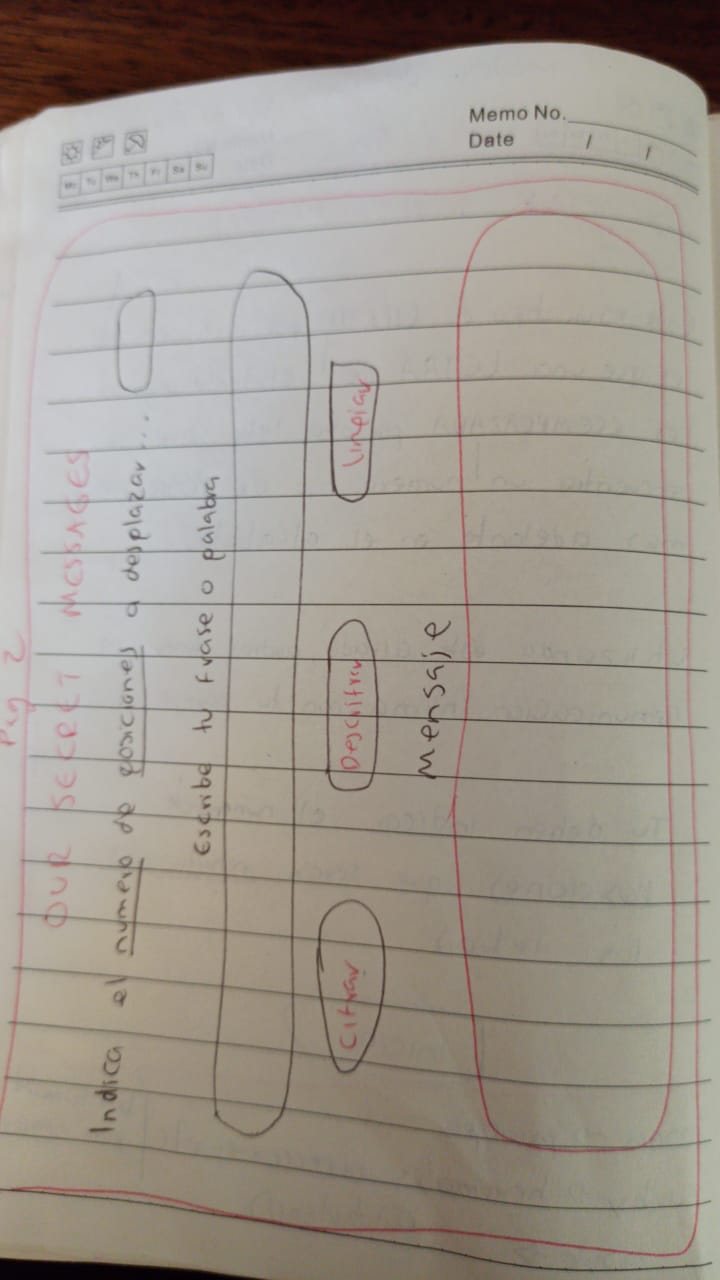 Memo No.
Date / /
Pag 2
OUR SECRET MESSAGES
Indica el numero de posiciones a desplazar...
Escribe tu frase o palabra
Cifrar Descifrar Limpiar
Mensaje